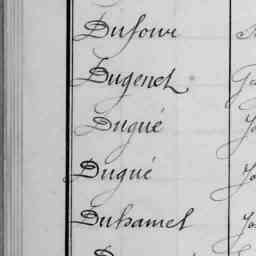 Dufour
Dugenet
Dugué
Dugué
Duhamel